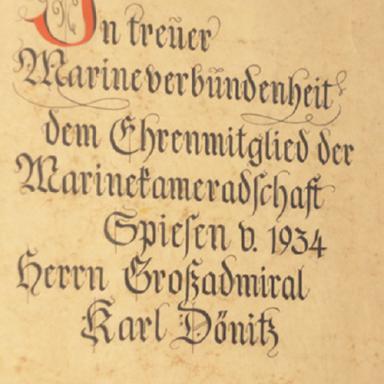 In treuer
Marineverbundenheit
dem Ehrenmitglied der
Marinekameradschaft
Spiesen v. 1934
Herrn Großadmiral
Karl Dönitz